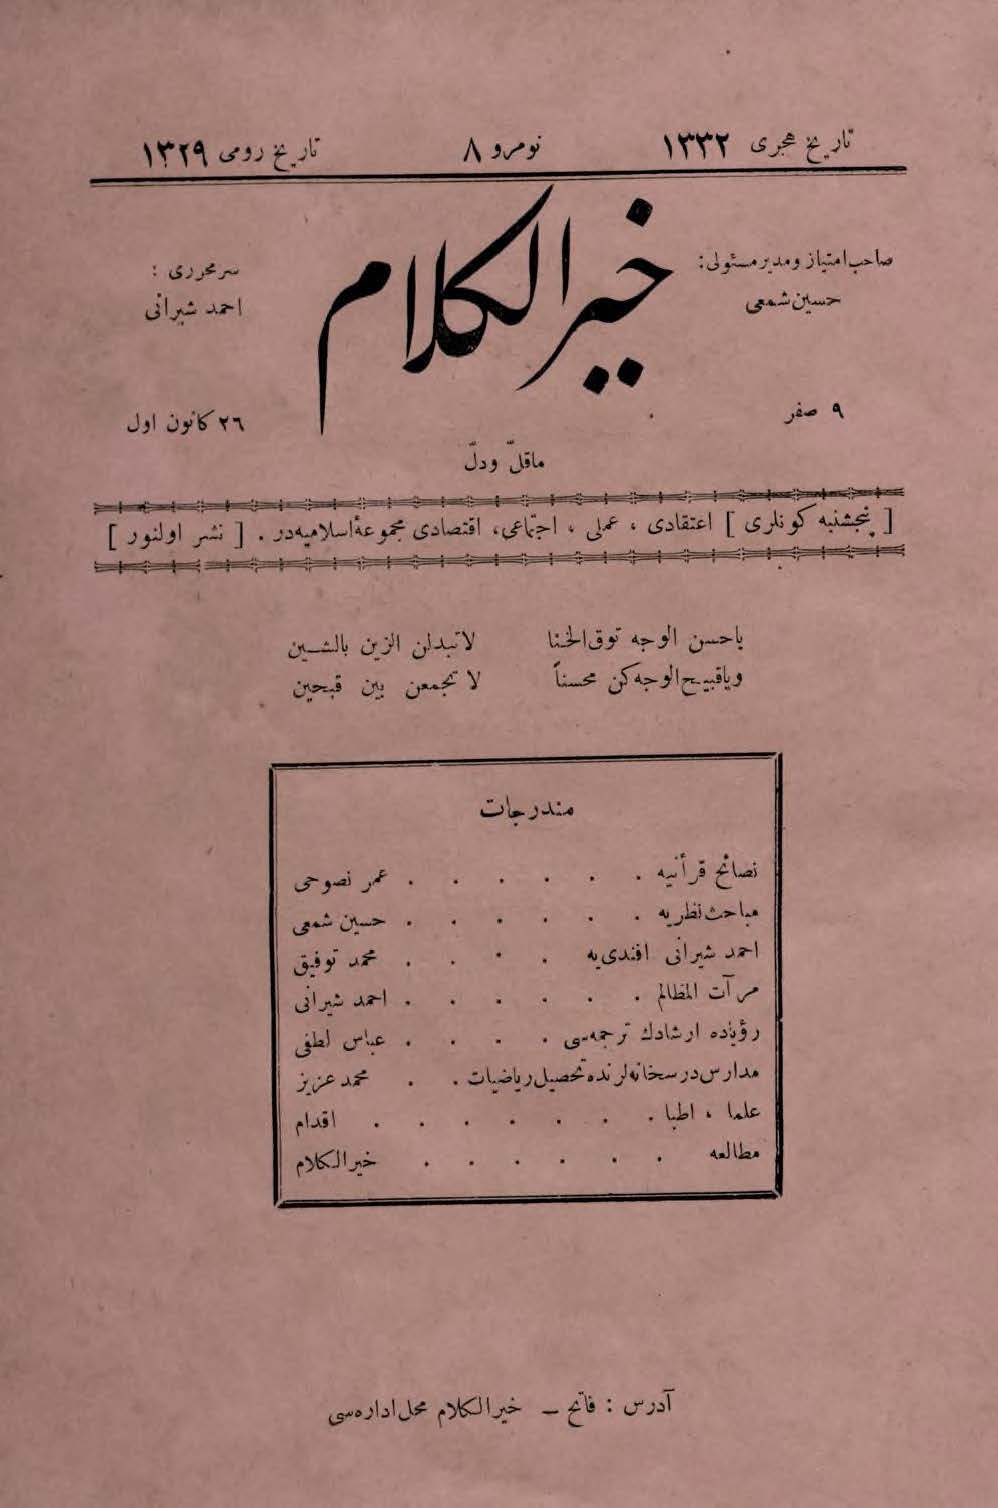 تاریخ هجری ١٣٣٢ نومرو ٨ تاریخ رومی ١٣٢٩
خیرالکلام
صاحب امتیاز ومدیرمسئولی:
حسین شمعی
سرمحرری :
احمد شیرانی
٩ صفر
٢٦ کانون اول
ماقلّ ودلّ
[ پنجشنبه کونلری ] اعتقادی ، عملی ، اجتماعی، اقتصادی مجموعهٔ اسلامیه‌در . [ نشر اولنور ]
یاحسن الوجه توق الخنا لاتبدلن الزین بالشین
ویاقبیح الوجه کن محسناً لا تجمعن بین قبحین
مندرجات
نصائح قرأنیه . . . . . . عمر نصوحی
مباحث نظریه . . . . . . حسین شمعی
احمد شیرانی افندی‌یه . . . . محمد توفیق
مرآت المظالم . . . . . . احمد شیرانی
رؤیاده ارشادك ترجمه‌سی . . . . عباس لطفی
مدارس درسخانه‌لرنده تحصیل ریاضیات . . محمد عزیز
علما ، اطبا . . . . . . . اقدام
مطالعه . . . . . . خیرالکلام
آدرس : فاتح — خیرالکلام محل اداره‌سی